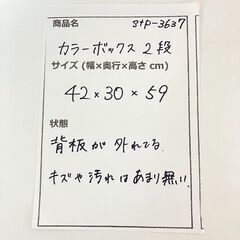 商品名 stp-3637
カラーボックス 2段
サイズ (幅×奥行×高さ cm)
42×30×59
状態
背板が外れてる.
キズや汚れはあまり無い.